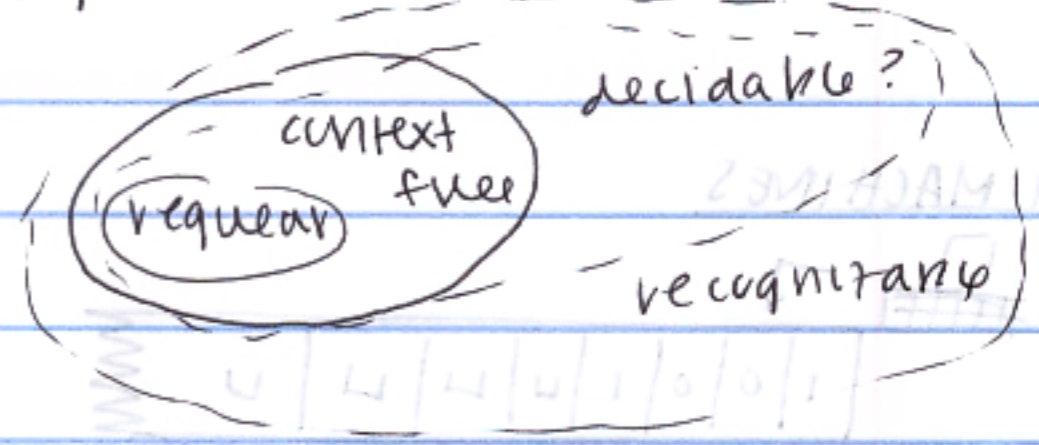 decidable?
context
free
regular
recognizable